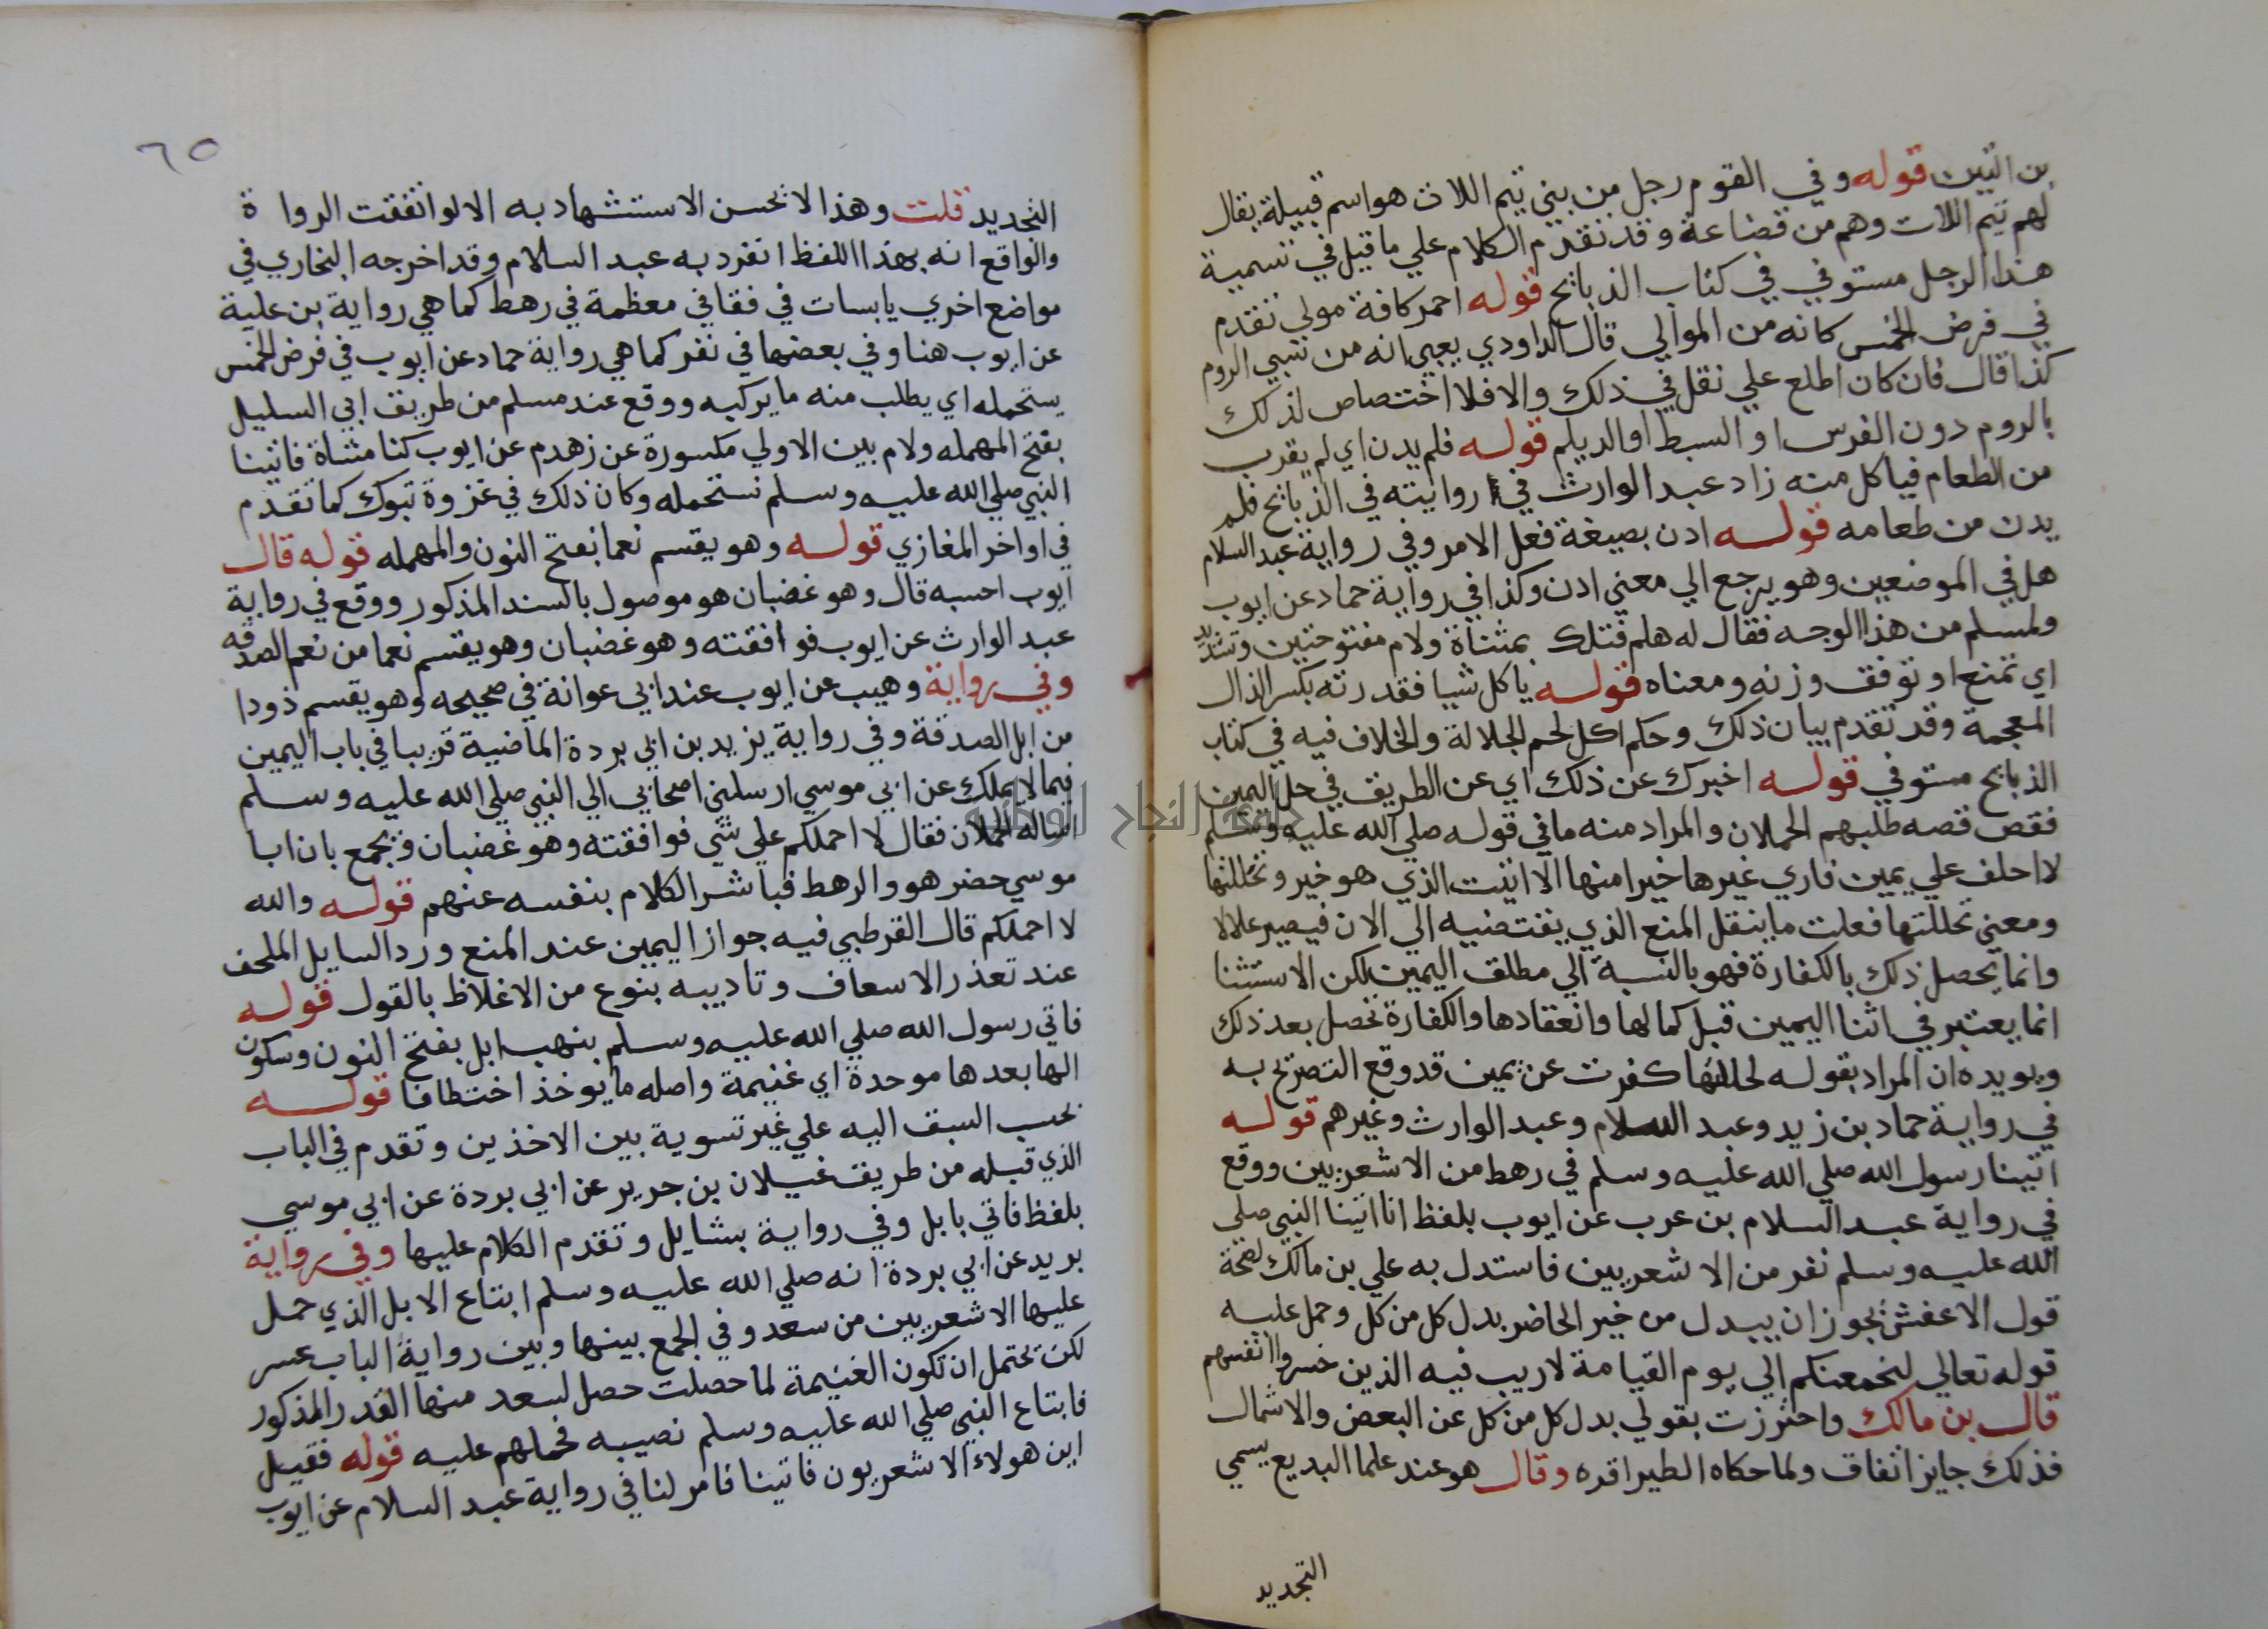 بن التين قوله وفي القوم رجل من بني تيم اللات هو اسم قبيلة يقال
لهم تيم اللات وهم من قضاعة وقد تقدم الكلام علي ما قيل في تسمية
هذا الرجل مستوفي في كتاب الذبايح قوله احمر كافة مولي تقدم
في فرض الخمس كانه من الموالي قال الداودي يعني انه من سبي الروم
كذا قال فان كان اطلع علي نقل في ذلك والا فلا اختصاص لذلك
بالروم دون الفرس او السبط او الديلم قوله فلم يدن اي لم يقرب
من الطعام فياكل منه زاد عبد الوارث في روايته في الذبايح فلم
يدن من طعامه قوله ادن بصيغة فعل الامر وفي رواية عبد السلام
هل في الموضعين وهو يرجع الي معني ادن وكذا في رواية حماد عن ايوب
ولمسلم من هذا الوجه فقال له هلم فتلك بمثناة ولام مفتوحتين وتشديد
اي تمنع او توقف وزنه ومعناه قوله ياكل شيا فقدرته بكسر الذال
المعجمة وقد تقدم بيان ذلك وحكم اكل لحم الجلالة والخلاف فيه في كتاب
الذبايح مستوفي قوله اخبرك عن ذلك اي عن الطريق في حل اليمين
فقص قصه طلبهم الحملان والمراد منه ما في قوله صلي الله عليه وسلم
لا احلف علي يمين فاري غيرها خيرا منها الا اتيت الذي هو خير وتحللتها
ومعني تحللتها فعلت ما ينقل المنع الذي يقتضيه الي الان فيصير علالا
وانما يحصل ذلك بالكفارة فهو بالنسبة الي مطلق اليمين لكن الاستثنا
انما يعتبر في اثنا اليمين قبل كمالها وانعقادها والكفارة تحصل بعد ذلك
ويويده ان المراد بقوله تحللتها كفرت عن يمين قد وقع التصريح به
في رواية حماد بن زيد وعبد السلام وعبد الوارث وغيرهم قوله
اتينا رسول الله صلي الله عليه وسلم في رهط من الاشعريين ووقع
في رواية عبد السلام بن عرب عن ايوب بلفظ انا اتينا النبي صلي
الله عليه وسلم نفر من الاشعريين فاستدل به علي بن مالك لصحة
قول الاعفش يجوز ان يبدل من خير الحاضر بدل كل من كل وحمل عليه
قوله تعالي لنجمعنكم الي يوم القيامة لا ريب فيه الذين خسروا انفسهم
قال بن مالك واحترزت بقولي بدل كل من كل عن البعض والاشمال
فذلك جايز اتفاق ولما حكاه الطير اقره وقال هو عند علما البديع يسمي
التجديد
٦٥
التجديد قلت وهذا لا يحسن الاستشهاد به الا لو اتفقت الرواة
والواقع انه بهذا اللفظ انفرد به عبد السلام وقد اخرجه البخاري في
مواضع اخري يا بسات في فقا في معظمة في رهط كما هي رواية بن علية
عن ايوب هنا وفي بعضها في نفر كما هي رواية حماد عن ايوب في فرض الخمس
يستحمله اي يطلب منه ما يركبه ووقع عند مسلم من طريق ابي السليل
بفتح المهمله ولام بين الاولي مكسورة عن زهدم عن ايوب كنا مشاة فاتينا
النبي صلي الله عليه وسلم نستحمله وكان ذلك في غزوة تبوك كما تقدم
في اواخر المغازي قوله وهو يقسم نعما بفتح النون والمهمله قوله قال
ايوب احسبه قال وهو غضبان هو موصول بالسند المذكور ووقع في رواية
عبد الوارث عن ايوب فوافقته وهو غضبان وهو يقسم نعما من نعم الصدقه
وفي رواية وهيب عن ايوب عند ابي عوانة في صحيحه وهو يقسم ذودا
من ابل الصدقة وفي رواية يزيد بن ابي بردة الماضية قريبا في باب اليمين
فيما لا يملك عن ابي موسي ارسلني اصحابي الي النبي صلي الله عليه وسلم
اساله الحملان فقال لا احملكم علي شي فوافقته وهو غضبان ويجمع بان ابا
موسي حضر هو والرهط فباشر الكلام بنفسه عنهم قوله والله
لا احملكم قال القرطبي فيه جواز اليمين عند المنع ورد السايل الملحف
عند تعذر الاسعاف وتاديبه بنوع من الاغلاظ بالقول قوله
فاتي رسول الله صلي الله عليه وسلم بنهب ابل بفتح النون وسكون
الها بعدها موحدة اي غنيمة واصله ما يوخذ اختطافا قوله
بحسب السبق اليه علي غير تسوية بين الاخذين وتقدم في الباب
الذي قبله من طريق غيلان بن جرير عن ابي بردة عن ابي موسي
بلفظ فاتي بابل وفي رواية بشايل وتقدم الكلام عليها وفي رواية
بريد عن ابي بردة انه صلي الله عليه وسلم ابتاع الابل الذي حمل
عليها الاشعريين من سعد وفي الجمع بينها وبين رواية الباب عسر
لكن تحتمل ان تكون الغنيمة لما حصلت حصل لسعد منها القدر المذكور
فابتاع النبي صلي الله عليه وسلم نصيبه فحملهم عليه قوله فقيل
اين هولاء الاشعريون فاتينا فامر لنا في رواية عبد السلام عن ايوب
جامعة النجاح الوطنية